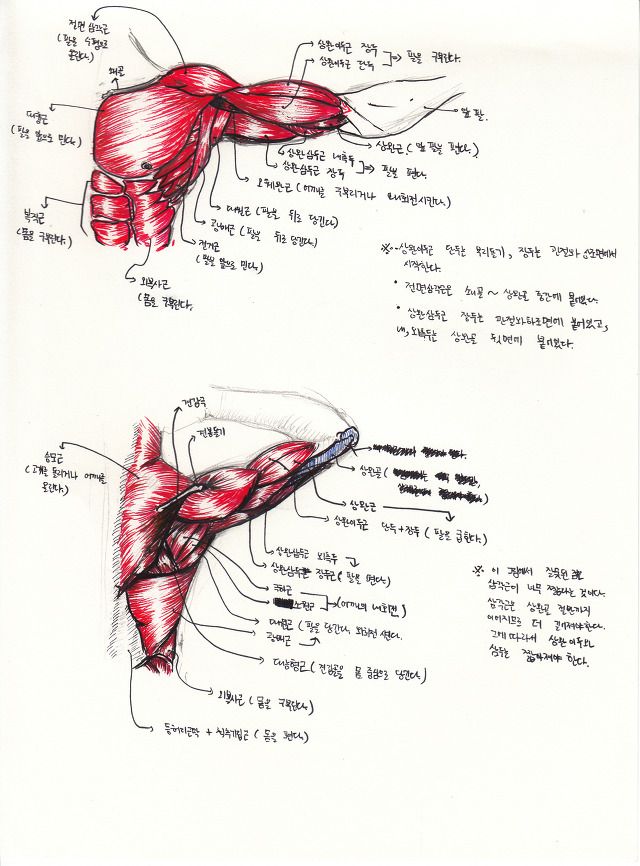 전면 삼각근
(팔을 수평으로
올린다.)
쇄골
대흉근
(팔을 앞으로 민다.)
복직근
(몸을 구부린다.)
상완이두근 장두
상완이두근 단두
팔을 구부린다.
앞 팔.
상완근 (앞 팔을 편다.)
상완삼두근 내측두
상완삼두근 장두
팔을 편다.
오훼완근 (어깨를 구부리거나 내회전시킨다.)
대원근 (팔을 뒤로 당긴다.)
광배근 (팔을 뒤로 당긴다.)
전거근
(팔을 앞으로 민다.)
외복사근
(몸을 구부린다.)
※ 상완이두근 단두는 오훼돌기, 장두는 관절와 상결절에서
시작한다.
• 전면삼각근은 쇄골 ~ 상완골 중간에 붙어있다.
• 상완삼두근 장두는 관절와하조면에 붙어있고,
내,외측두는 상완골 뒷면에 붙어있다.
견갑극
견봉돌기
승모근
(고개를 돌리거나 어깨를
올린다.)
상완골 (
상완근
상완이두근 단두+장두 (팔을 굽힌다.)
상완삼두근 외측두
상완삼두근 장두 (팔을 편다.)
극하근
소원근
(어깨의 내회전)
대원근 (팔을 당긴다.
광배근
(견갑골을 몸 중심으로 당긴다.)
외복사근 (몸을 구부린다.)
등허리근막 + 척추기립근 (몸을 편다.)
※ 이 그림에서 잘못된
삼각근이 너무 짧다는 것이다.
삼각근은 상완골 절반까지
이어지므로 더 길어져야한다.
그에 따라서 상완 이두와
삼두는 짧아져야 한다.